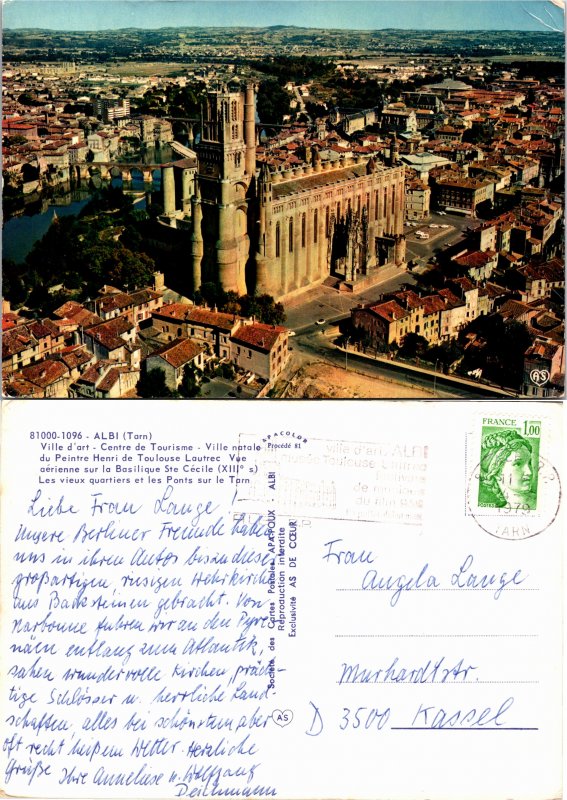 81000-1096 - ALBI (Tarn)
Ville d'art - Centre de Tourisme - Ville natale
du Peintre Henri de Toulouse Lautrec Vue
aérienne sur la Basilique Ste Cécile (XIII° s)
Les vieux quartiers et les Ponts sur le Tarn
Liebe Frau Lange!
Unsere Berliner Freunde haben
uns in ihren Autos bis an diese
großartigen riesigen Wehrkirche
aus Backsteinen gebracht. Von
Narbonne fuhren wir an den Pyre-
näen entlang zum Atlantik,
sahen wundervolle Kirchen, präch-
tige Schlösser u. herrliche Land-
schaften, alles bei schönstem aber
oft recht heißem Wetter. Herzliche
Grüße Ihre Anneliese u. Wolfgang
Deichmann
APACOLOR
Procédé 81
Société des Cartes Postales APA-POUX - ALBI
Reproduction interdite
Exclusivité AS DE CŒUR
AS
ville d'art ALBI
Musée Toulouse Lautrec
FRANCE
1,00
POSTES
1979
TARN
Frau
Angela Lange
Murhardtstr.
D 3500 Kassel
AS